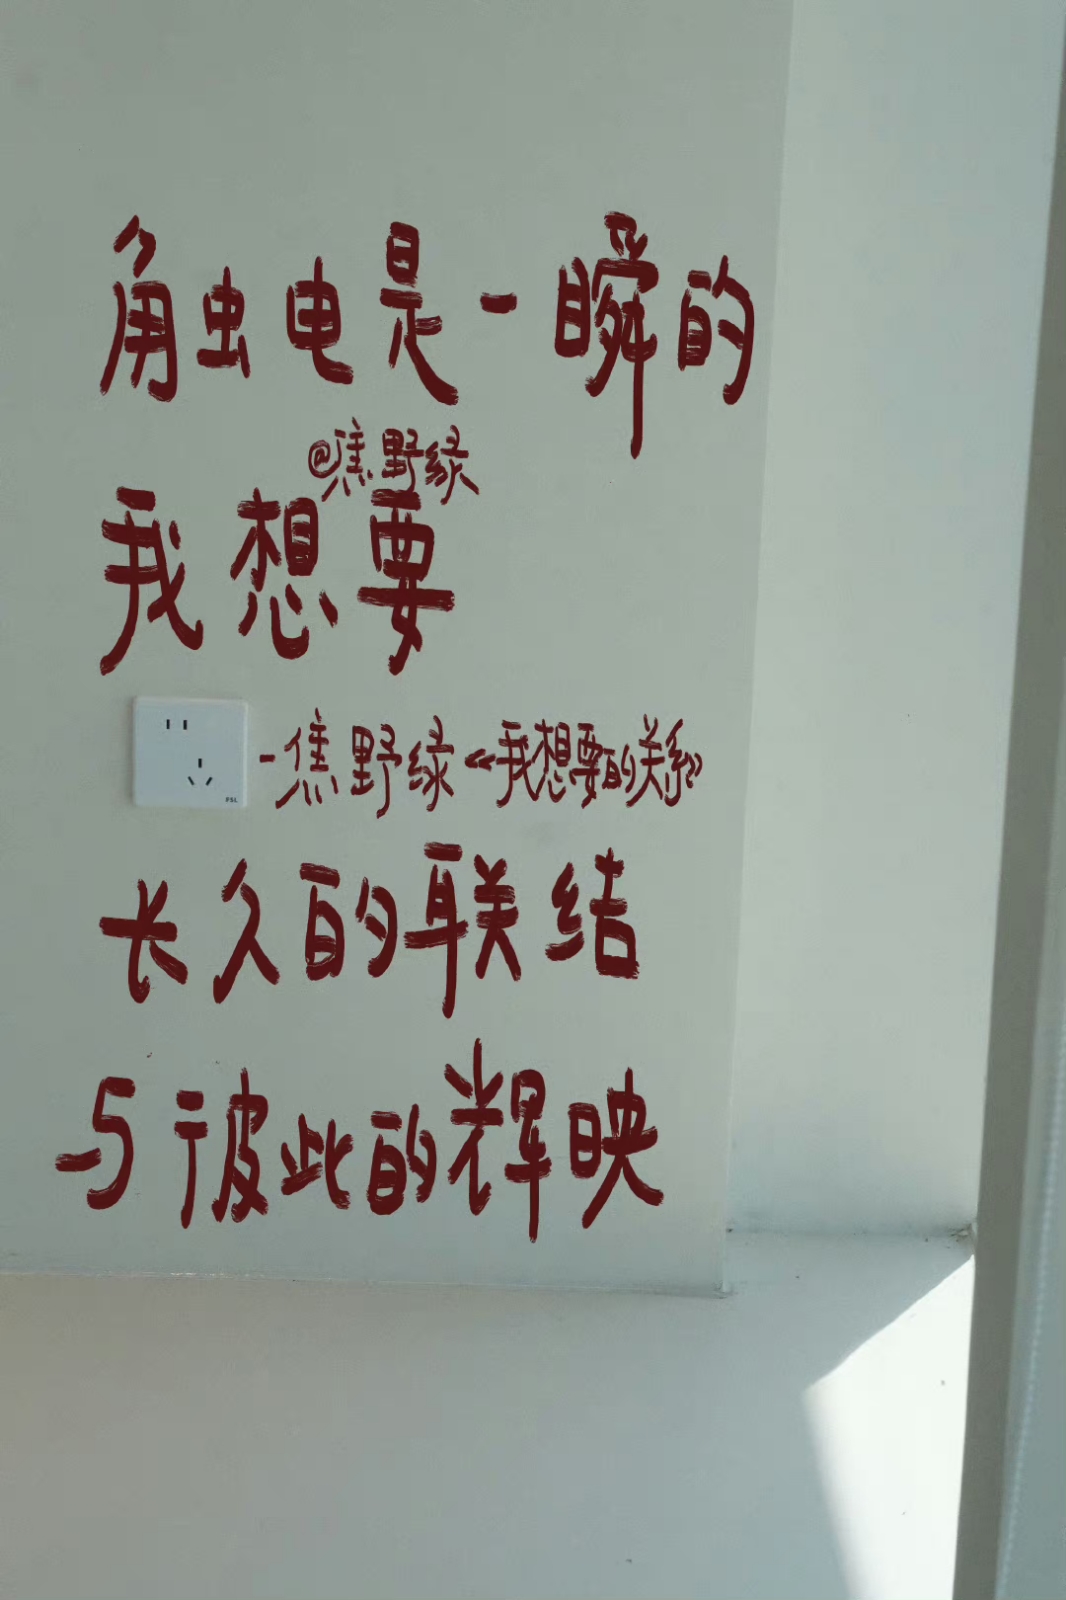 触电是一瞬的
@焦野绿
我想要
-焦野绿《我想要的关系》
长久的联结
与彼此的辉映